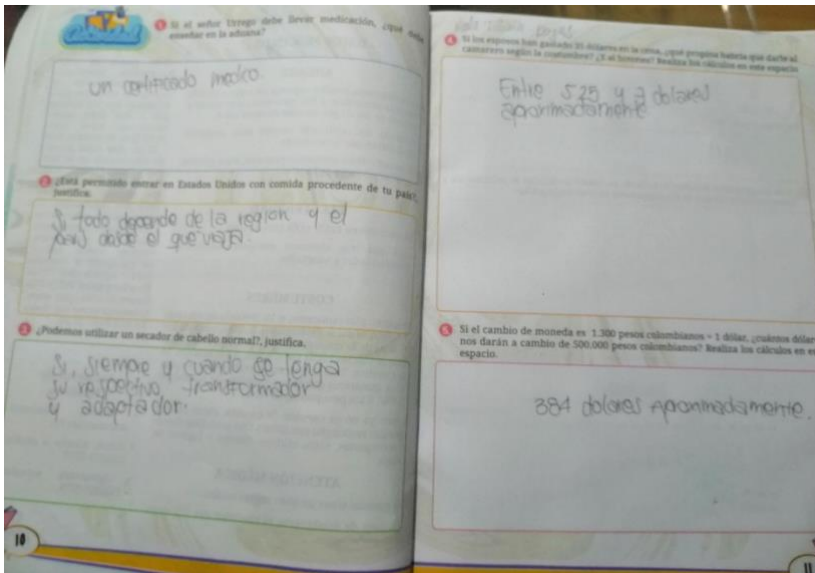 Si el señor Urrego debe llevar medicación, ¿qué debe
enseñar en la aduana?
un certificado medico.
¿Está permitido entrar en Estados Unidos con comida procedente de tu país?,
justifica.
Si todo depende de la region y el
pais desde el que viaja.
¿Podemos utilizar un secador de cabello normal?, justifica.
Si, siempre y cuando se tenga
su respectivo transformador
y adaptador.
10
4
Si los esposos han gastado 35 dólares en la cena, ¿qué propina habría que darle al
camarero según la costumbre? ¿Y al botones? Realiza los cálculos en este espacio
Entre 5.25 y 7 dolares
aproximadamente
5
Si el cambio de moneda es 1.300 pesos colombianos = 1 dólar, ¿cuántos dólar
nos darán a cambio de 500.000 pesos colombianos? Realiza los cálculos en e
espacio.
384 dolares Aproximadamente.
11